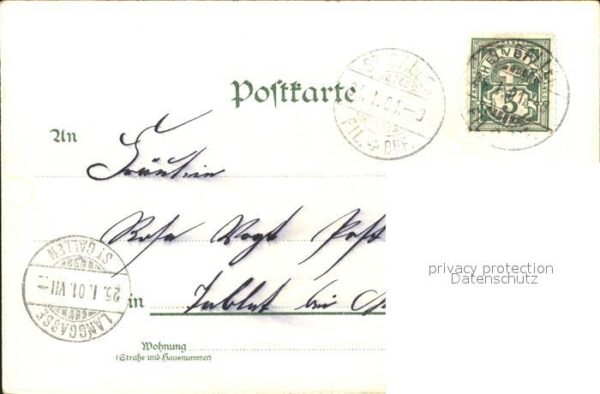 ST GALLEN
1.01.-9
FIL. BRF.
HELVETIA
5
Postkarte
An Fräulein
Rosa Vogt Post
in Tablat bei
ST GALLEN
25.I.01.VII-
LANGGASSE
privacy protection
Datenschutz
Wohnung
(Straße und Hausnummer)